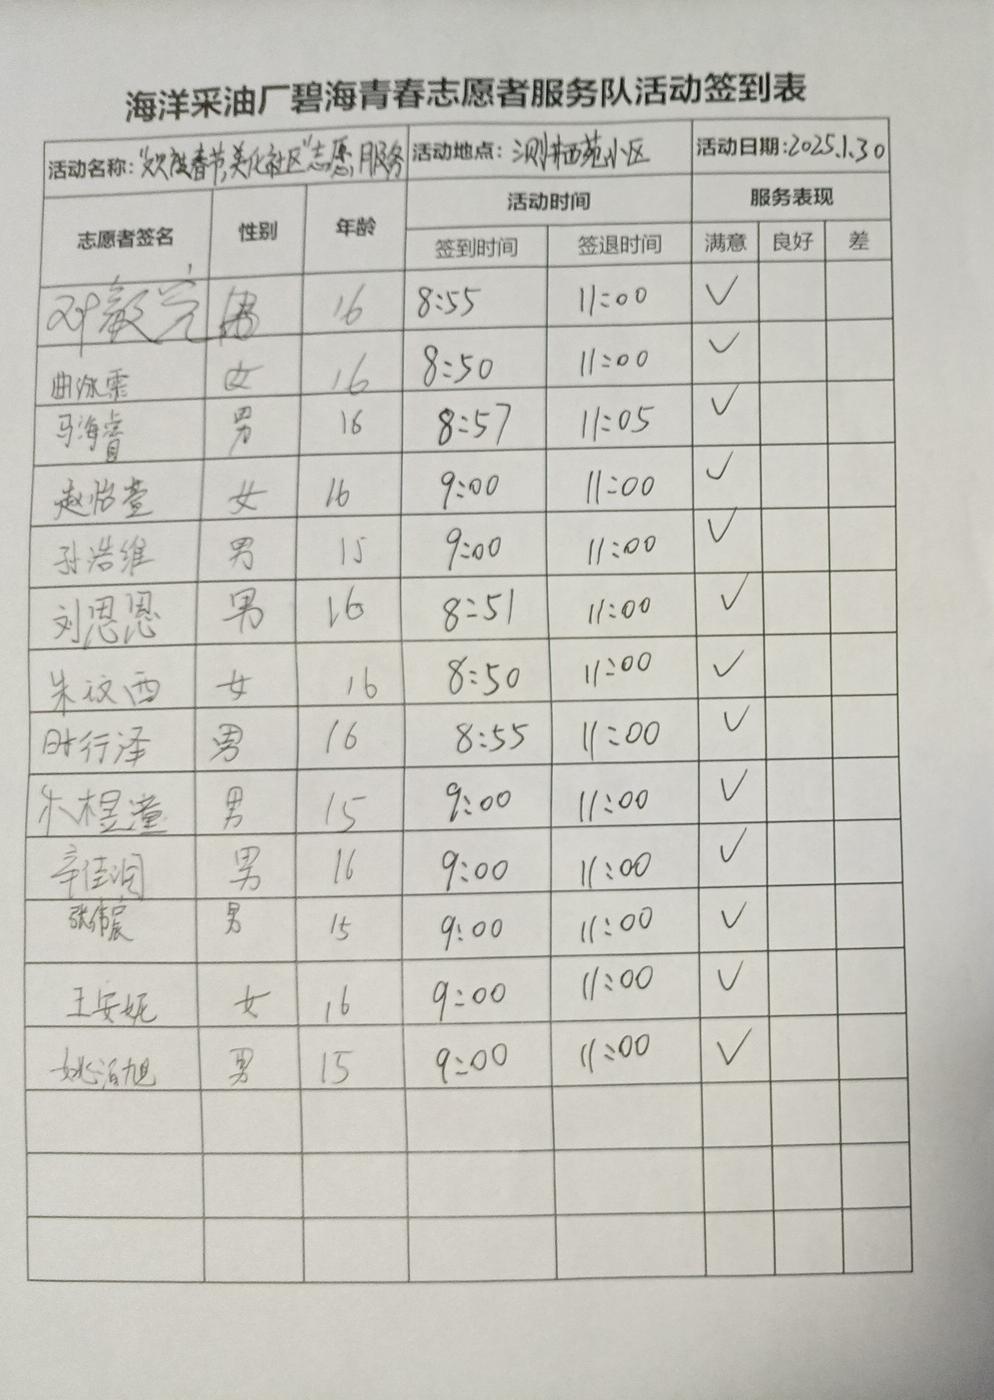 海洋采油厂碧海青春志愿者服务队活动签到表
活动名称：“欢度春节，美化社区”志愿服务 活动地点：测井西苑小区 活动日期：2025.1.30
志愿者签名 性别 年龄 活动时间 服务表现
签到时间 签退时间 满意 良好 差
男 16 8:55 11:00 ✓
女 16 8:50 11:00 ✓
马海 男 16 8:57 11:05 ✓
赵怡萱 女 16 9:00 11:00 ✓
孙浩维 男 15 9:00 11:00 ✓
刘恩恩 男 16 8:51 11:00 ✓
朱玟西 女 16 8:50 11:00 ✓
时行泽 男 16 8:55 11:00 ✓
男 15 9:00 11:00 ✓
辛佳润 男 16 9:00 11:00 ✓
张伟宸 男 15 9:00 11:00 ✓
王安妮 女 16 9:00 11:00 ✓
男 15 9:00 11:00 ✓